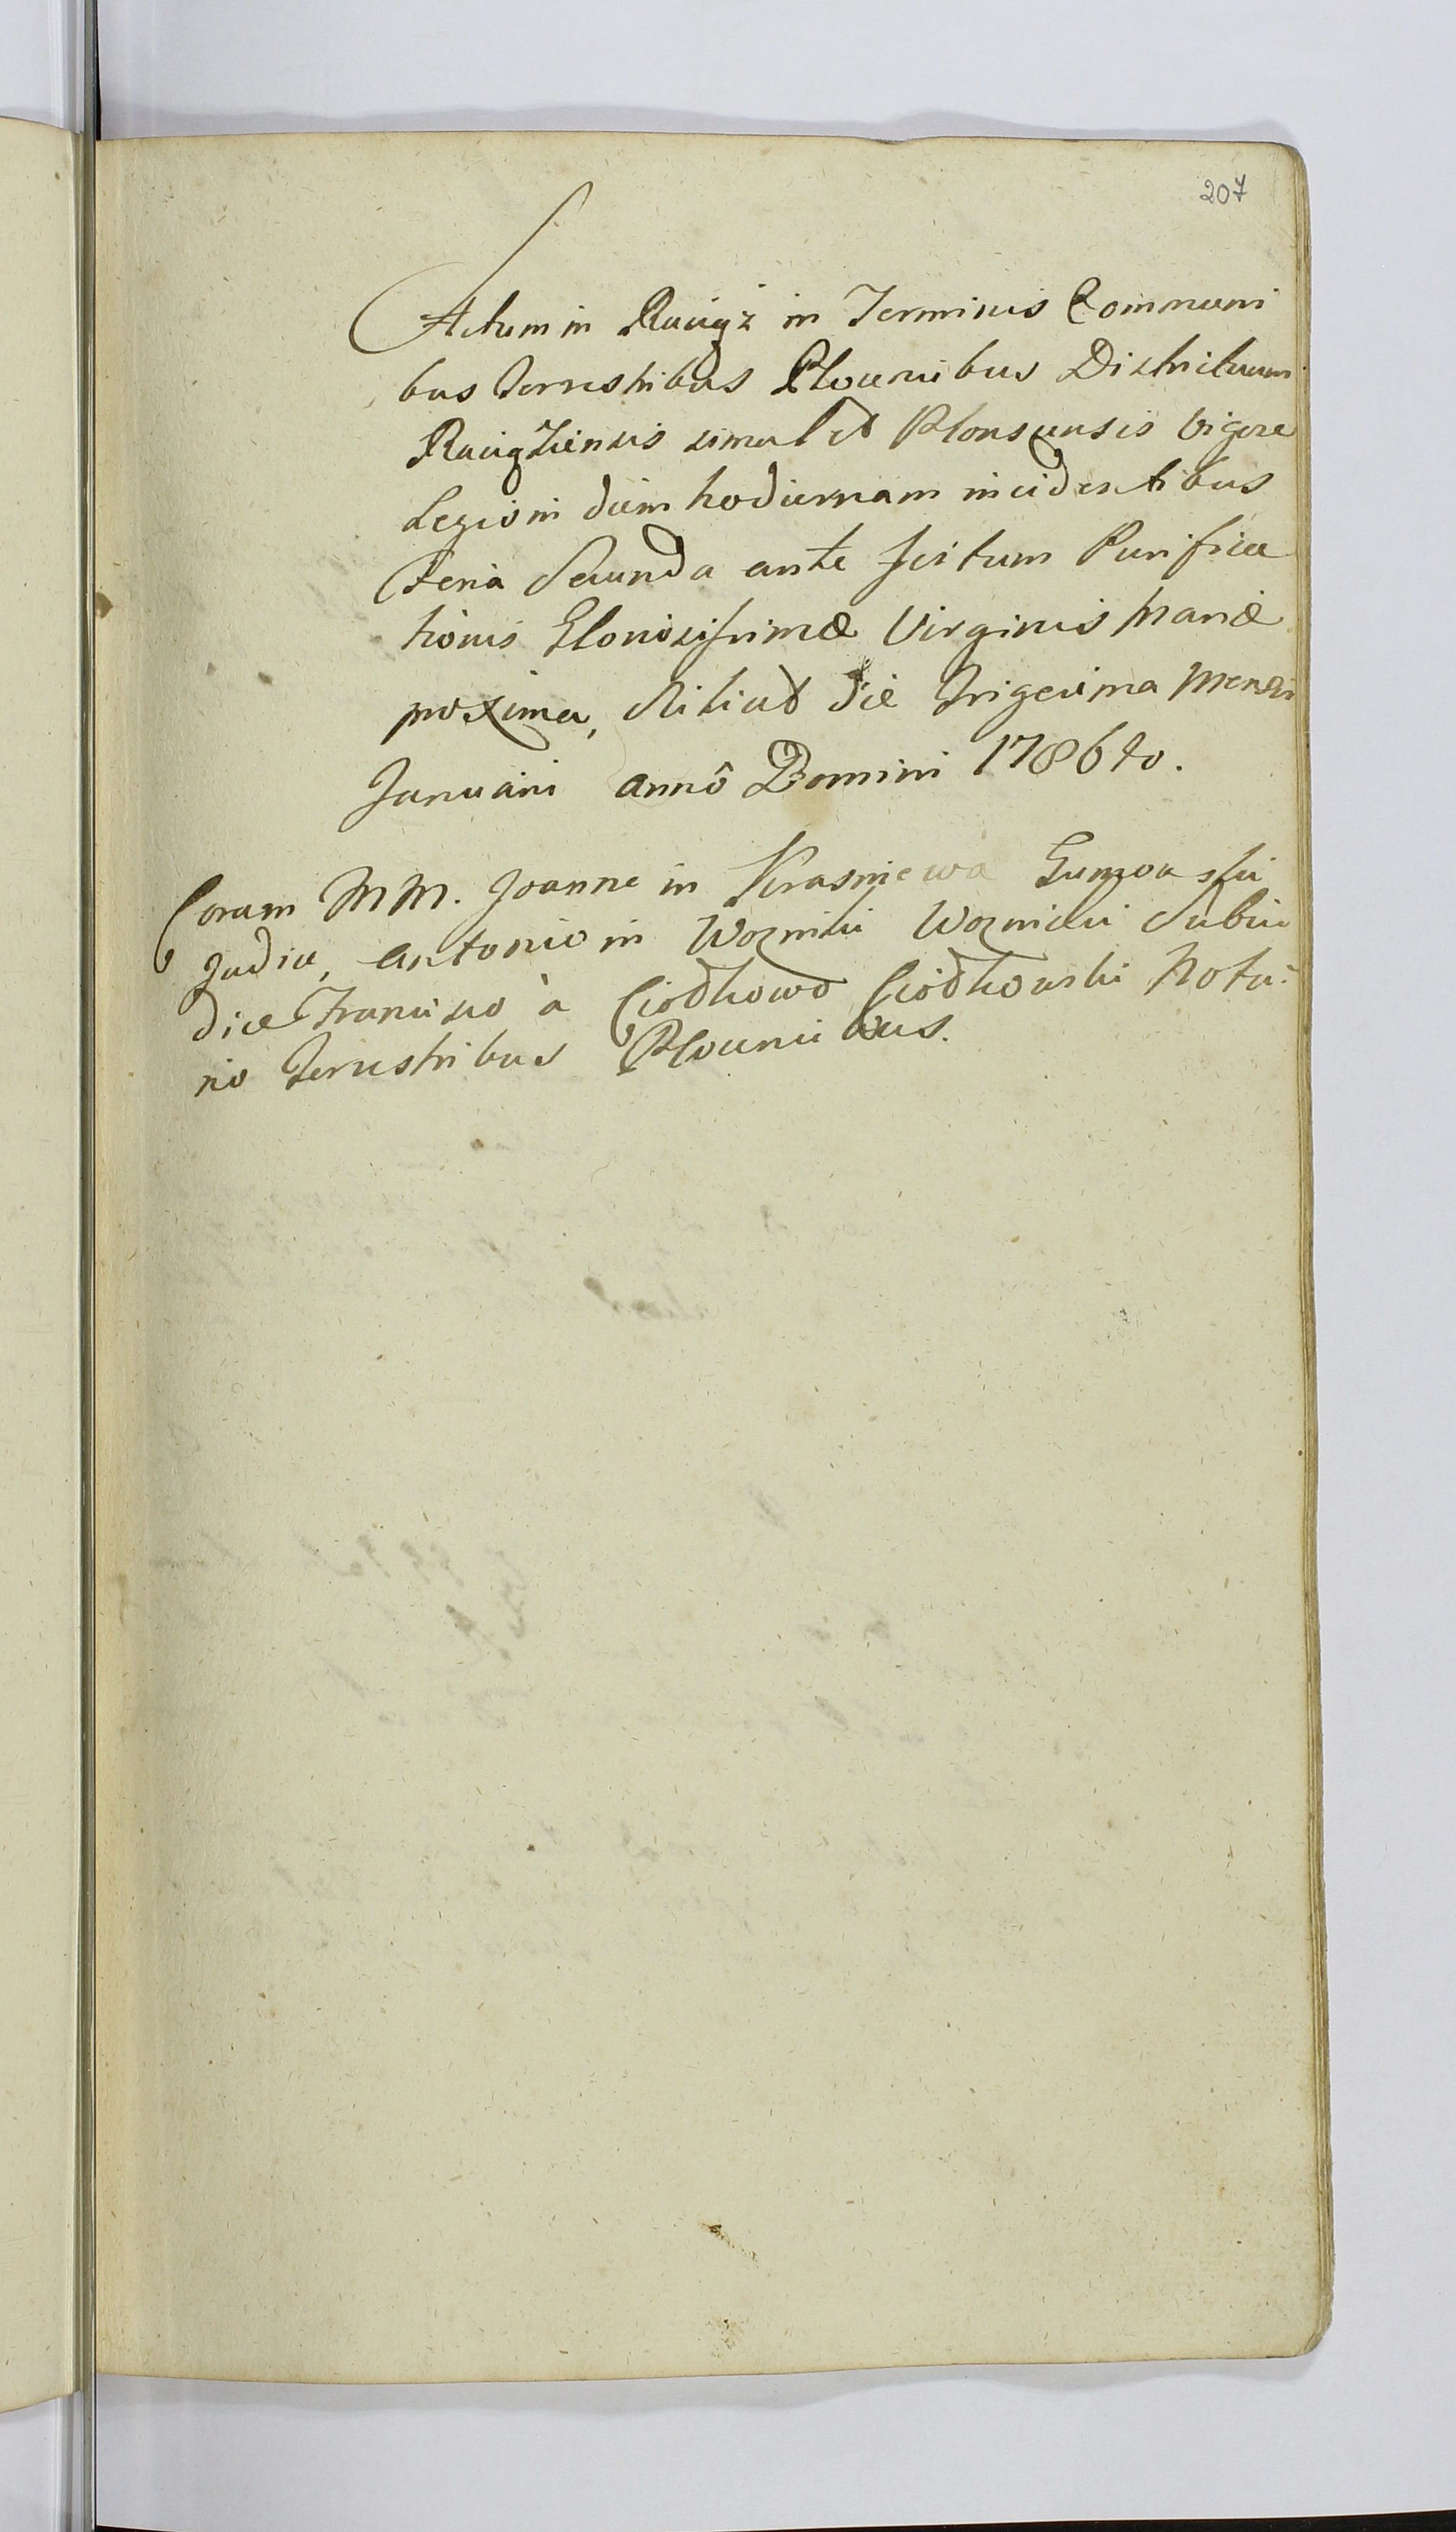 207
Actum in Raciąż in Terminis Communi
bus Terrestribus Plocensibus Districtuum
Raciążiensis simul et Plonscensis vigore
Legis in diem hodiernam incidentibus
Feria Secunda ante festum Purifica
tionis Gloriosissimæ Virginis Mariæ
proxima, die Trigesima Mensis
Januarii annô Domini 1786to.
Coram MM. Joanne in Krasniewa Gumowski
Judice, Antonio in Wozniki Woznicki Subiu
dice Francisco à Ciółkowo Ciółkowski Nota-
rio Terrestribus Plocensibus.